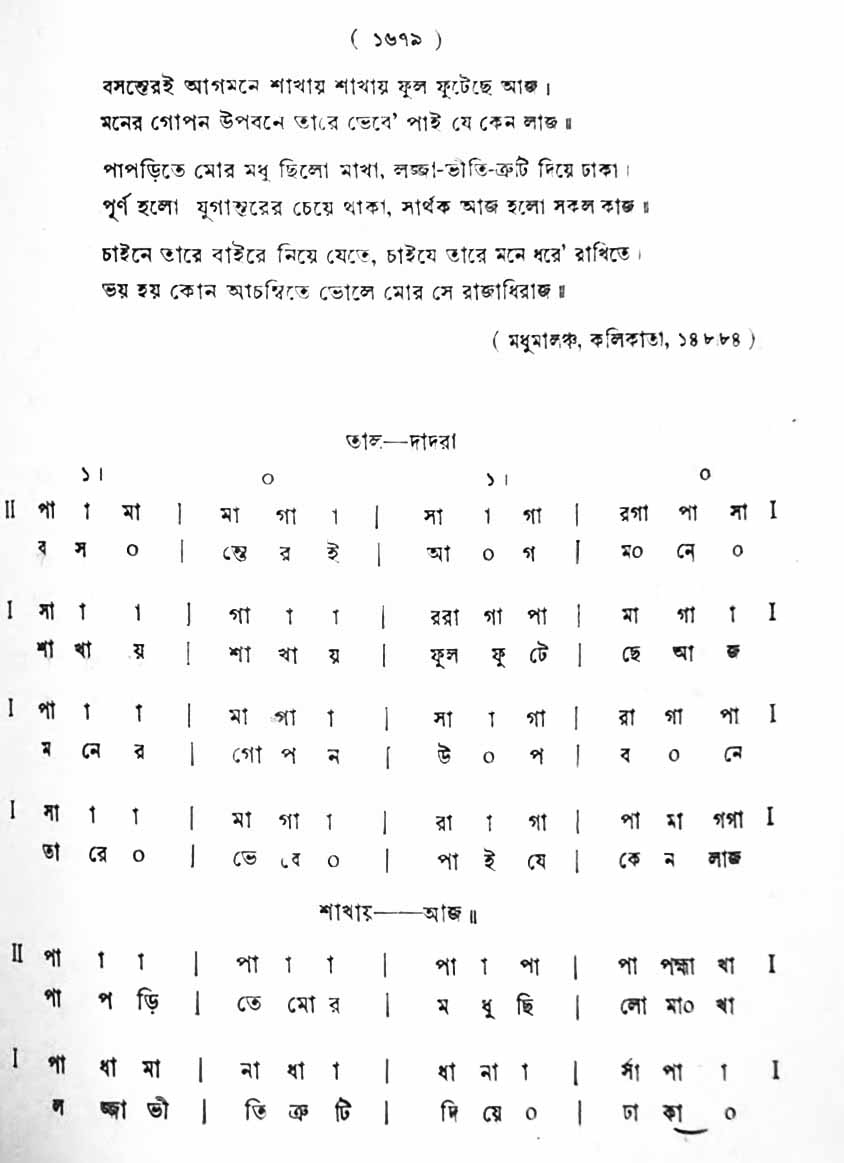 ( ১৬৭৯ )
বসন্তেরই আগমনে শাখায় শাখায় ফুল ফুটেছে আজ ।
মনের গোপন উপবনে তারে ভেবে' পাই যে কেন লাজ ॥
পাপড়িতে মোর মধু ছিলো মাখা, লজ্জা-ভীতি-ত্রুটি দিয়ে ঢাকা ।
পূর্ণ হলো যুগান্তরের চেয়ে থাকা, সার্থক আজ হলো সকল কাজ ॥
চাইনে তারে বাইরে নিয়ে যেতে, চাইযে তারে মনে ধরে' রাখিতে ।
ভয় হয় কোন আচম্বিতে ভোলে মোর সে রাজাধিরাজ ॥
( মধুমালঞ্চ, কলিকাতা, ১৪৮৮৪ )
তাল—দাদরা
১। ০ ১। ০
II পা া মা | মা গা া | সা া গা | রগা পা সা I
ব স ০ | ন্তে র ই | আ ০ গ | ম০ নে ০
I সা া া | গা া া | ররা গা পা | মা গা া I
শা খা য় | শা খা য় | ফুল ফু টে | ছে আ জ
I পা া া | মা গা া | সা া গা | রা গা পা I
ম নে র | গো প ন | উ ০ প | ব ০ নে
I সা া া | মা গা া | রা া গা | পা মা গগা I
তা রে ০ | ভে বে ০ | পা ই যে | কে ন লাজ
শাখায়——আজ ॥
II পা া া | পা া া | পা া পা | পা পহ্মা খা I
পা প ড়ি | তে মো র | ম ধু ছি | লো মা০ খা
I পা ধা মা | না ধা া | ধা না া | র্সা পা া I
ল জ্জা ভী | তি ত্রু টি | দি য়ে ০ | ঢা কা ০